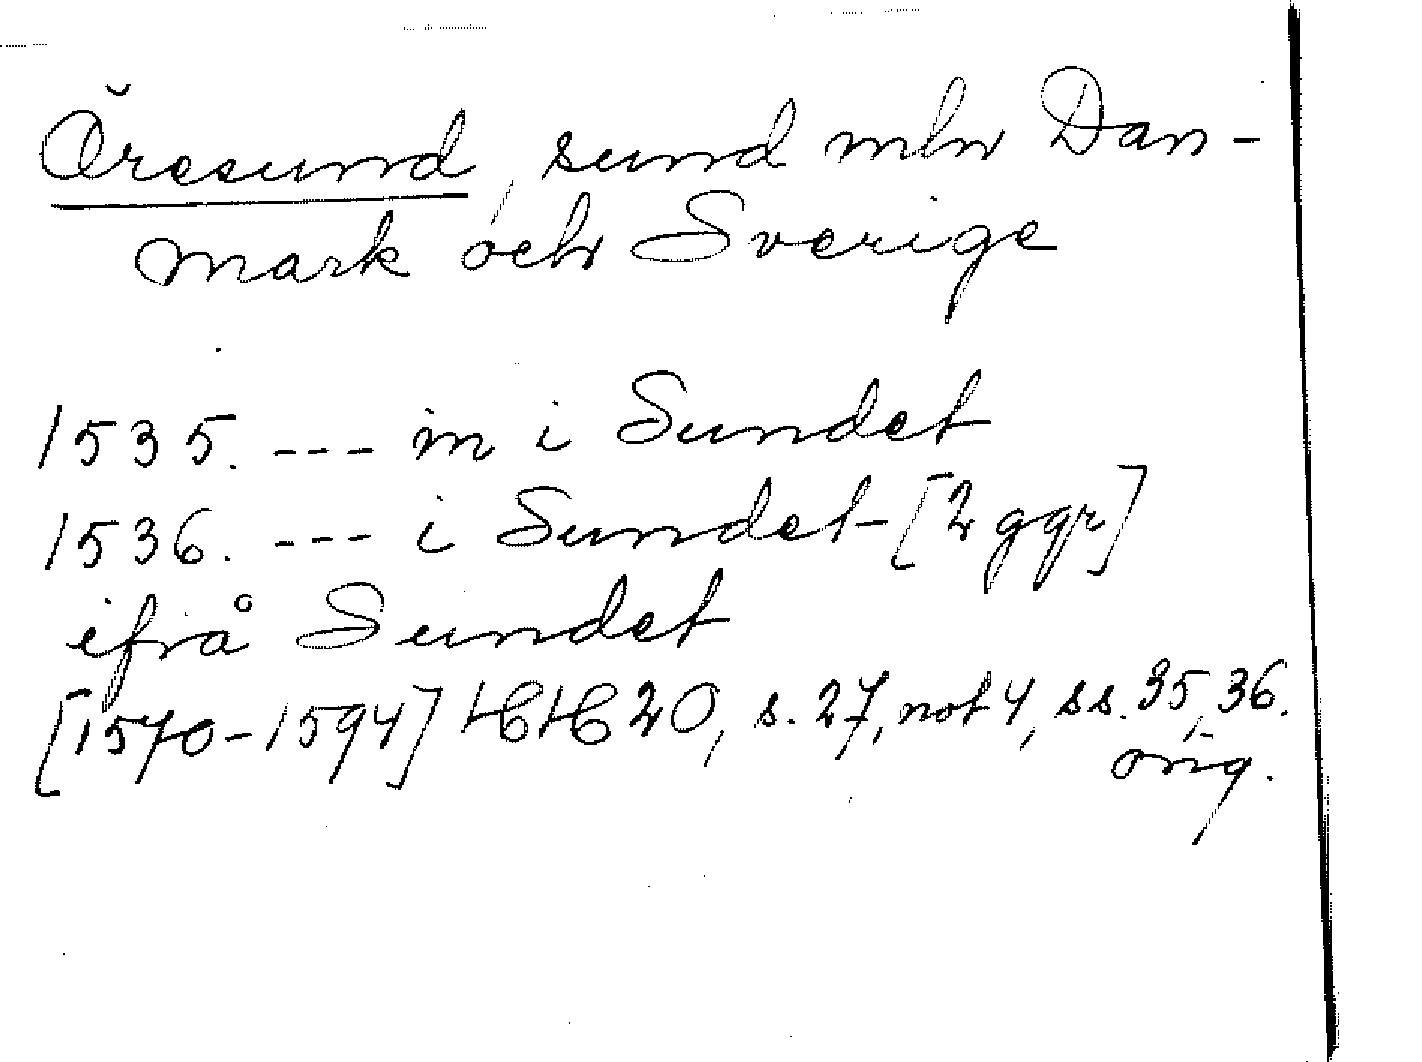 Öresund, sund mln Dan-
mark och Sverige
1535. --- in i Sundet
1536. --- i Sundet [2 ggr]
ifrå Sundet
[1570-1594] HH 20, s. 27, not 4, ss. 35, 36.
orig.